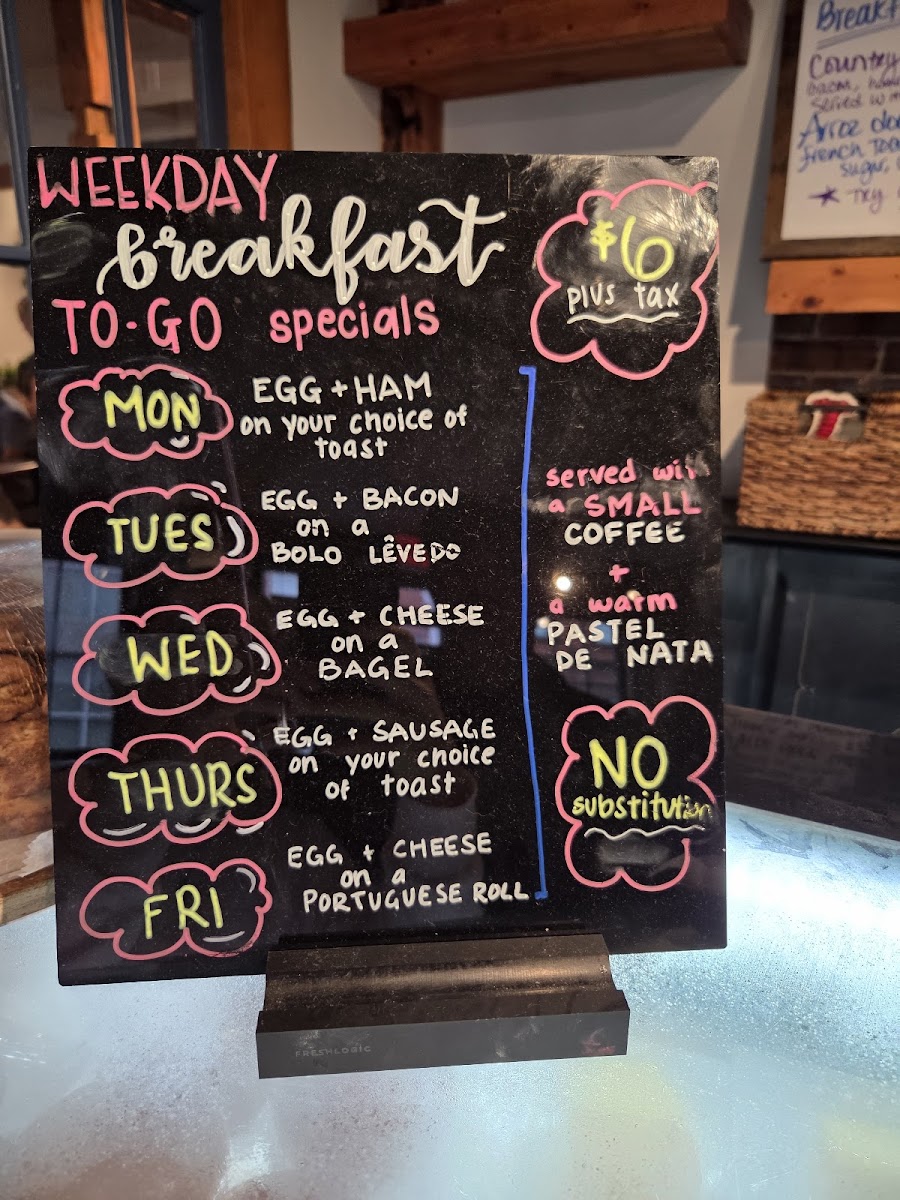 WEEKDAY
breakfast
TO-GO specials
$6
plus tax
MON
EGG + HAM
on your choice of
toast
TUES
EGG + BACON
on a
BOLO LÊVEDO
WED
EGG + CHEESE
on a
BAGEL
THURS
EGG + SAUSAGE
on your choice
of toast
FRI
EGG + CHEESE
on a
PORTUGUESE ROLL
served with
a SMALL
COFFEE
+
a warm
PASTEL
DE NATA
NO
substitution
FRESHLOGIC
Country
bacon,
served
Arroz
french
sugar,
Try